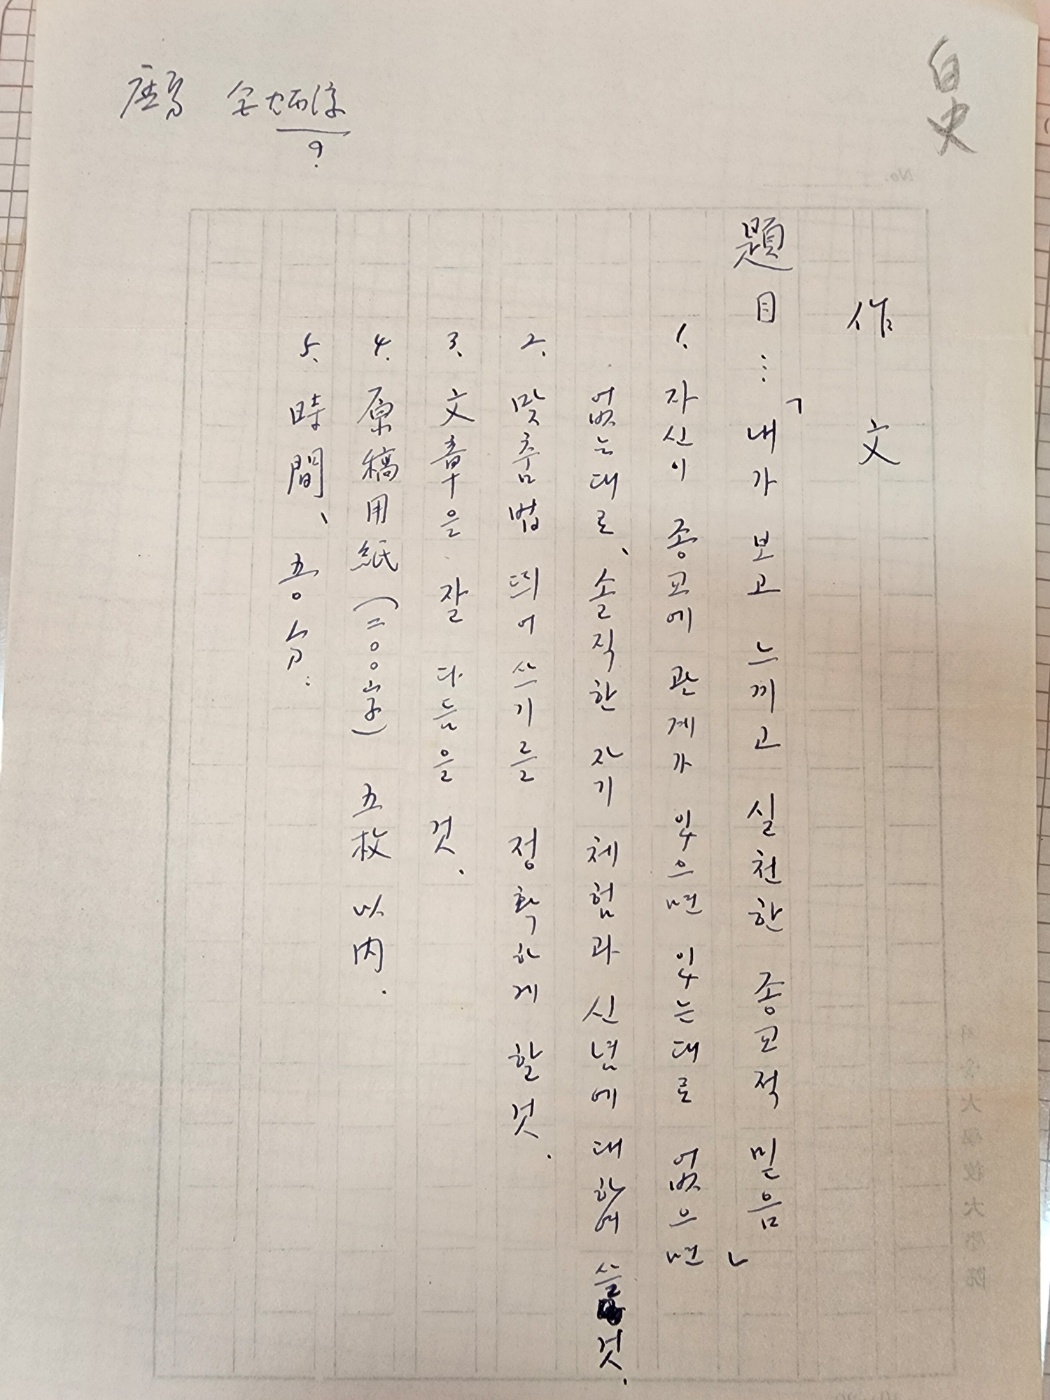 白史
作文
題目…「내가 보고 느끼고 실천한 종교적 믿음」
1. 자신이 종교에 관계가 있으면 있는대로 없으면
없는대로、솔직한 자기 체험과 신념에 대하여 쓸 것.
2. 맞춤법 띄어쓰기를 정확하게 할 것.
3. 文章을 잘 다듬을 것.
4. 原稿用紙(二〇〇字) 五枚 以内.
5. 時間、五〇分.
?